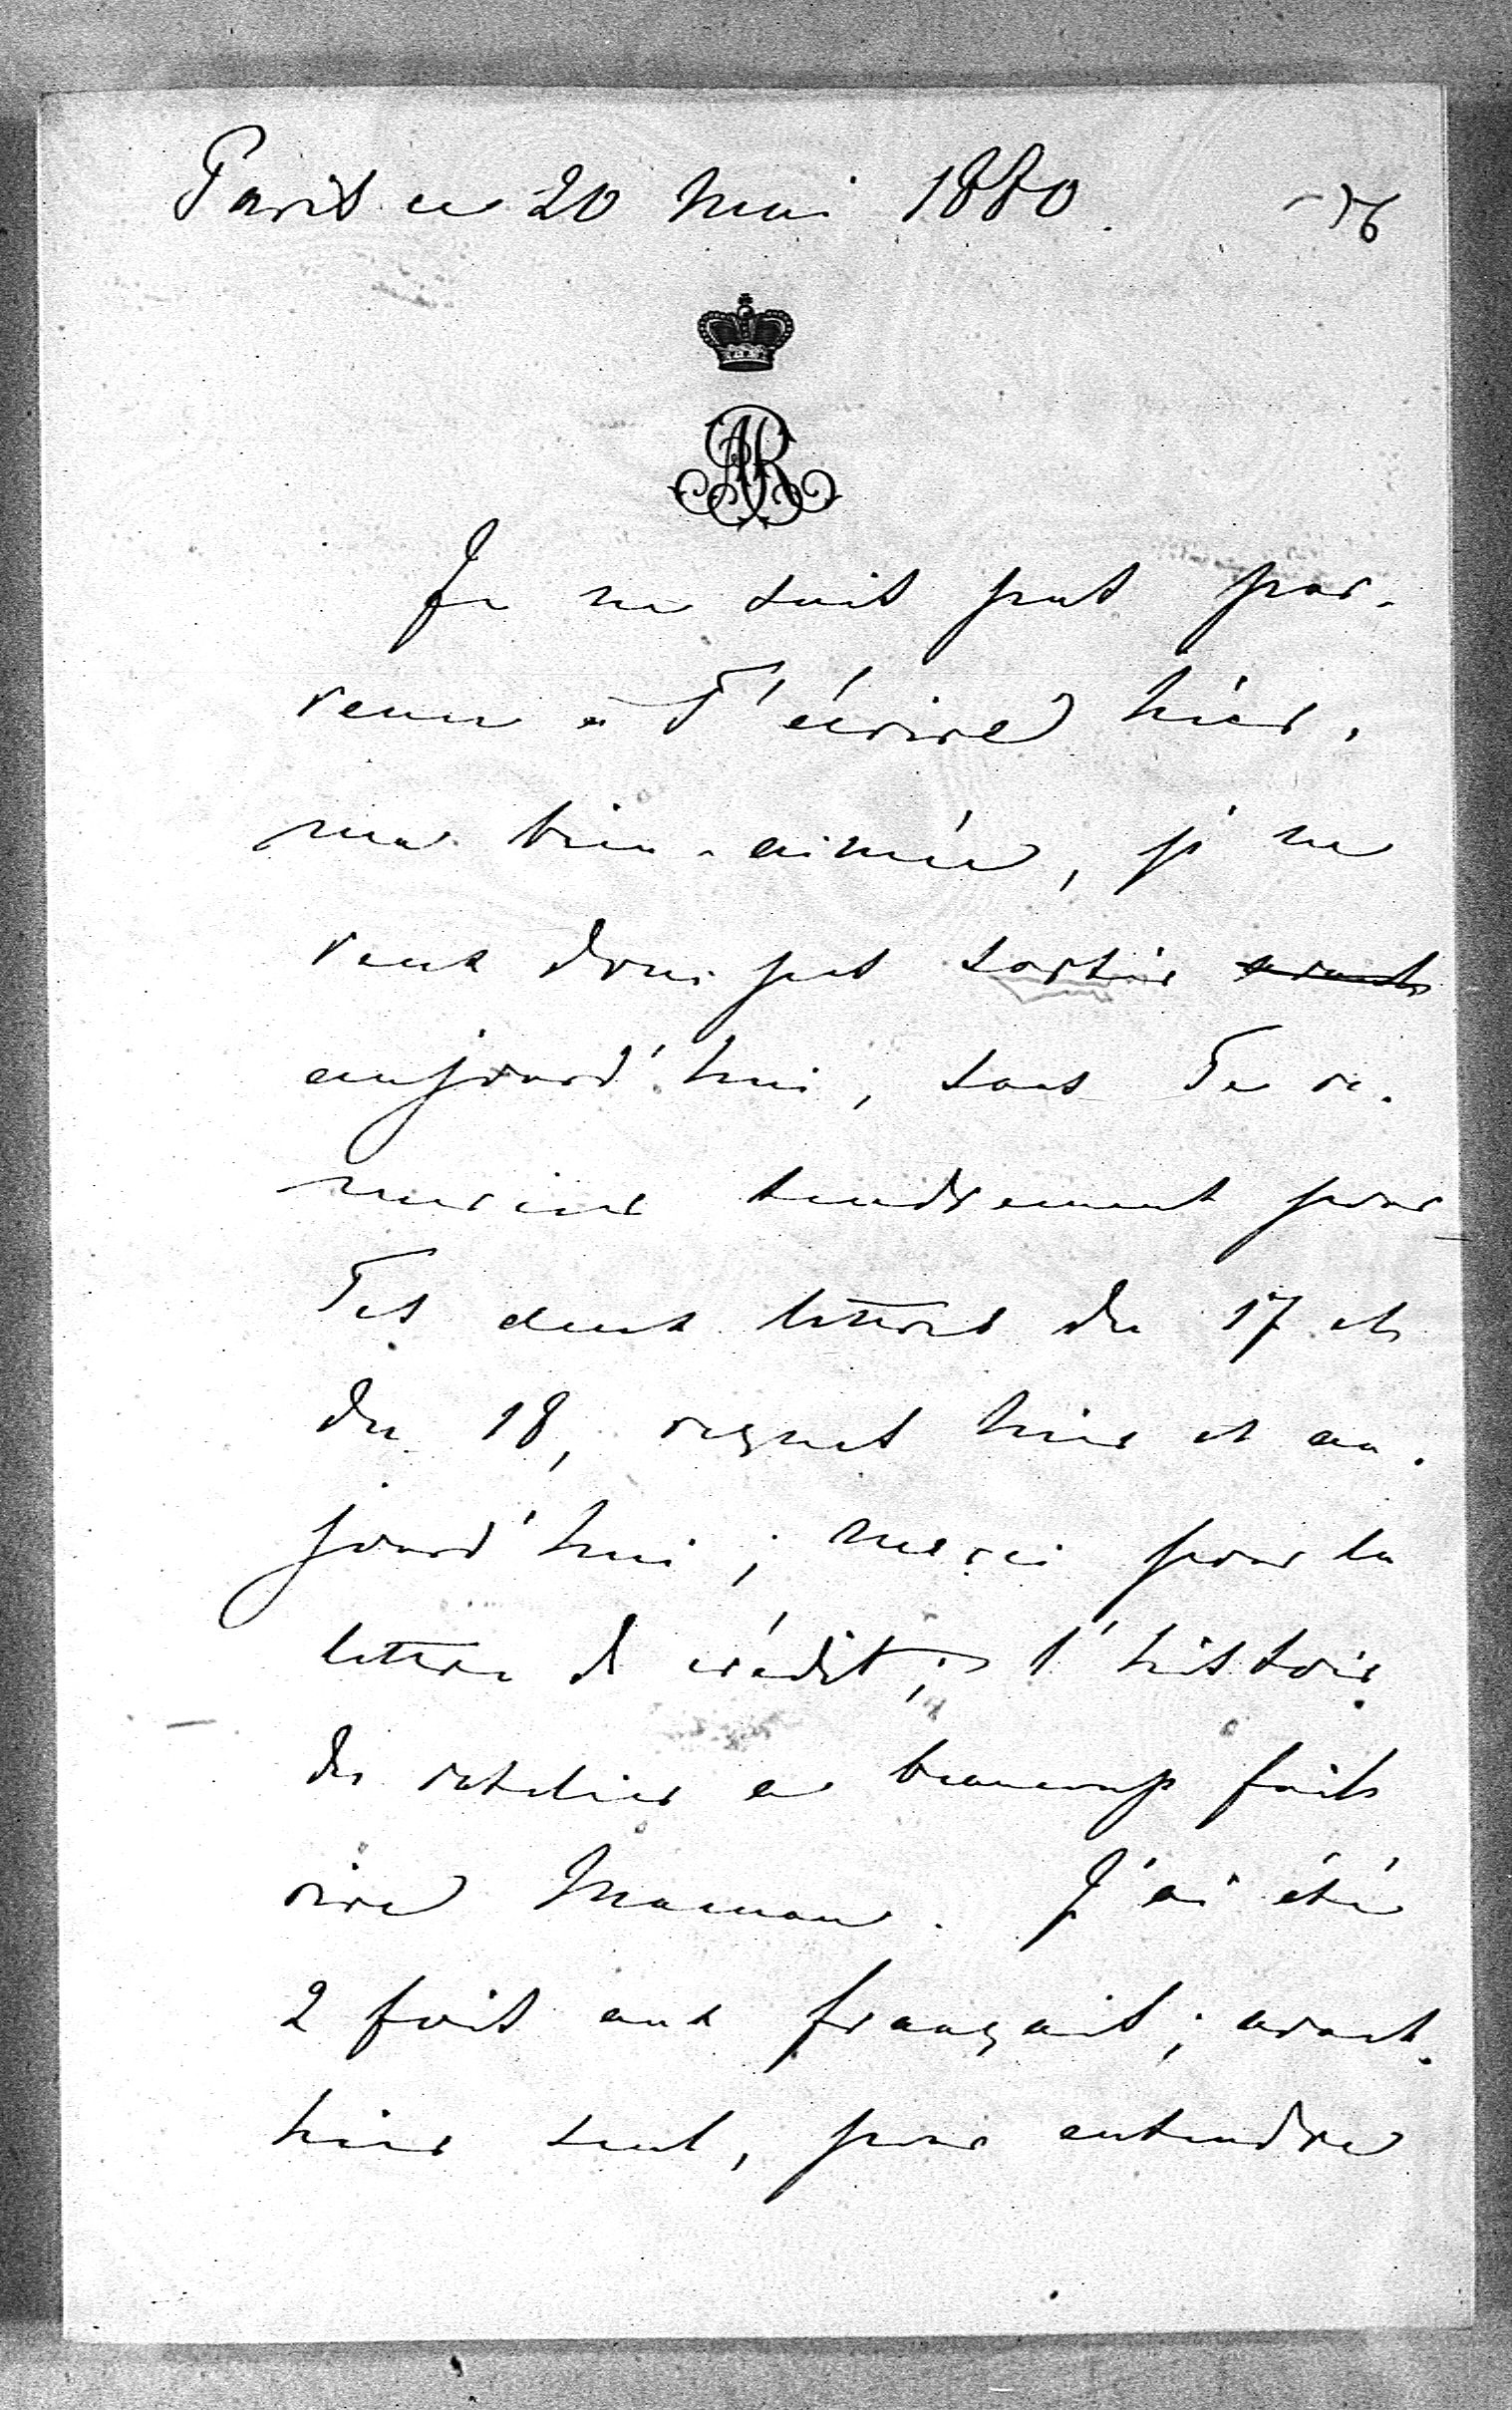 Paris ce 20 Mai 1880. 76
AR
Je ne suis pas par-
venu à T'écrire hier,
ma bien-aimée, je ne
veux donc pas sortir ~~avant~~
aujourd'hui, sans Te re-
mercier tendrement pour
Tes deux lettres du 17 et
du 18, reçues hier et au-
jourd'hui; merci pour la
lettre de crédit; l'histoire
du ratelier a beaucoup fait
rire Maman. J'ai été
2 fois aux français; avant-
hier seul, pour entendre